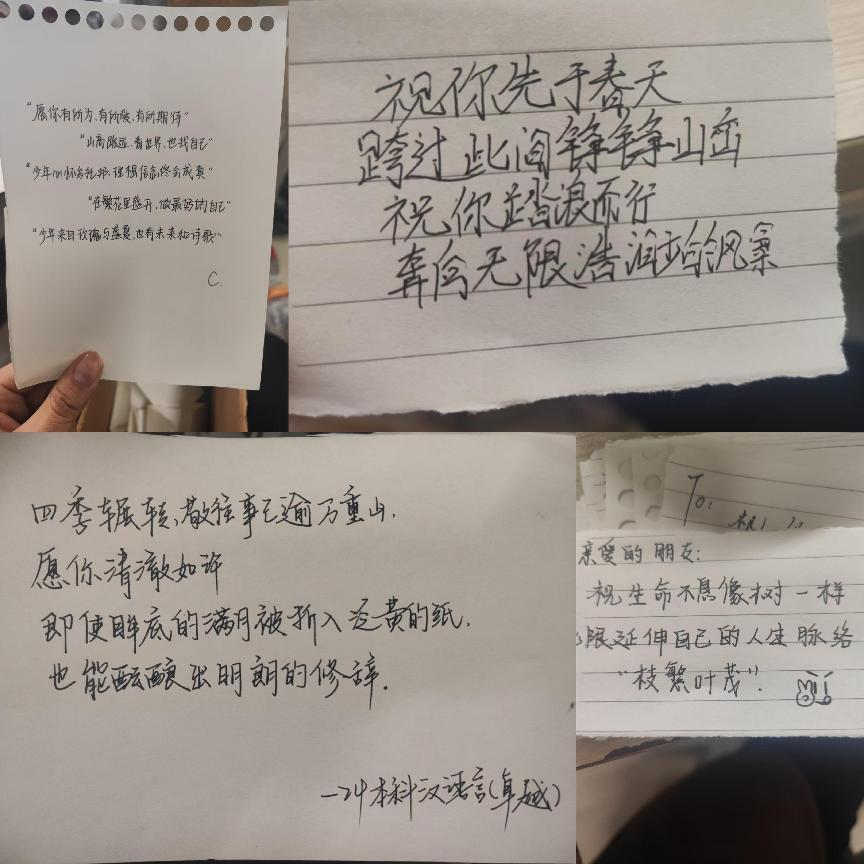 "愿你有所为、有所爱、有所期待"
"山高路远、看世界、也找自己"
"少年心怀乌托邦、理想信念终会成真"
"在繁花里盛开、做最好的自己"
"少年来自玫瑰与盛夏、也有未来和诗歌"
C.
祝你先于春天
跨过此间铮铮山峦
祝你踏浪而行
奔向无限浩瀚的风景
四季辗转,敬往事已逾万重山.
愿你清澈如许
即使眸底的满月被折入泛黄的纸.
也能酝酿出明朗的修辞.
—24本科汉语言(卓越)
To:
亲爱的朋友:
祝生命不息像树一样
限延伸自己的人生脉络
"枝繁叶茂".